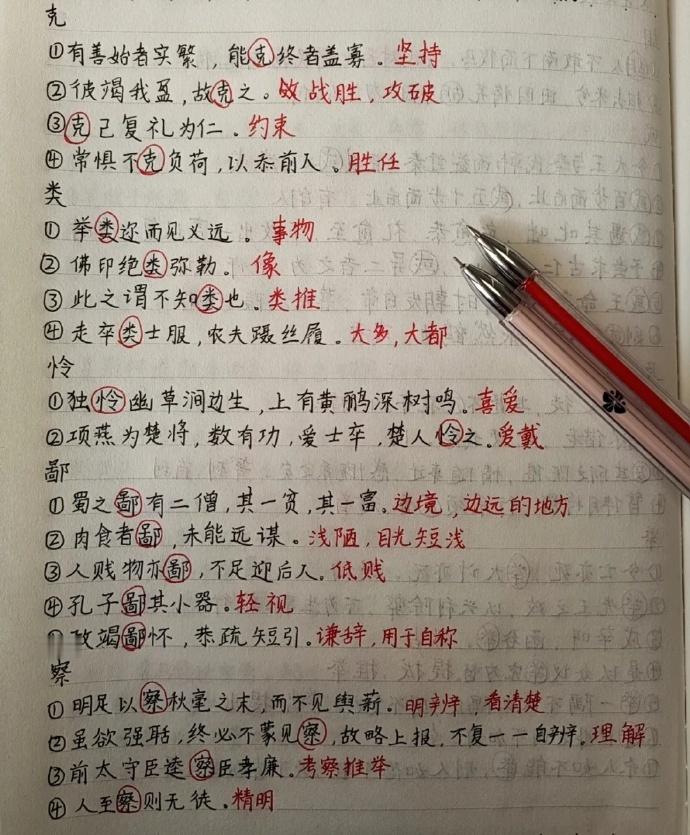 克
①有善始者实繁，能克终者盖寡。坚持
②彼竭我盈，故克之。战胜，攻破
③克己复礼为仁。约束
④常惧不克负荷，以忝前人。胜任
类
①举类迩而见义远。事物
②佛印绝类弥勒。像
③此之谓不知类也。类推
④走卒类士服，农夫蹑丝履。大多，大都
怜
①独怜幽草涧边生，上有黄鹂深树鸣。喜爱
②项燕为楚将，数有功，爱士卒，楚人怜之。爱戴
鄙
①蜀之鄙有二僧，其一贫，其一富。边境，边远的地方
②肉食者鄙，未能远谋。浅陋，目光短浅
③人贱物亦鄙，不足迎后人。低贱
④孔子鄙其小器。轻视
竭鄙怀，恭疏短引。谦辞，用于自称
察
①明足以察秋毫之末，而不见舆薪。明辨，看清楚
②虽欲强聒，终必不蒙见察，故略上报，不复一一自辨。理解
③前太守臣逵察臣孝廉。考察推举
④人至察则无徒。精明